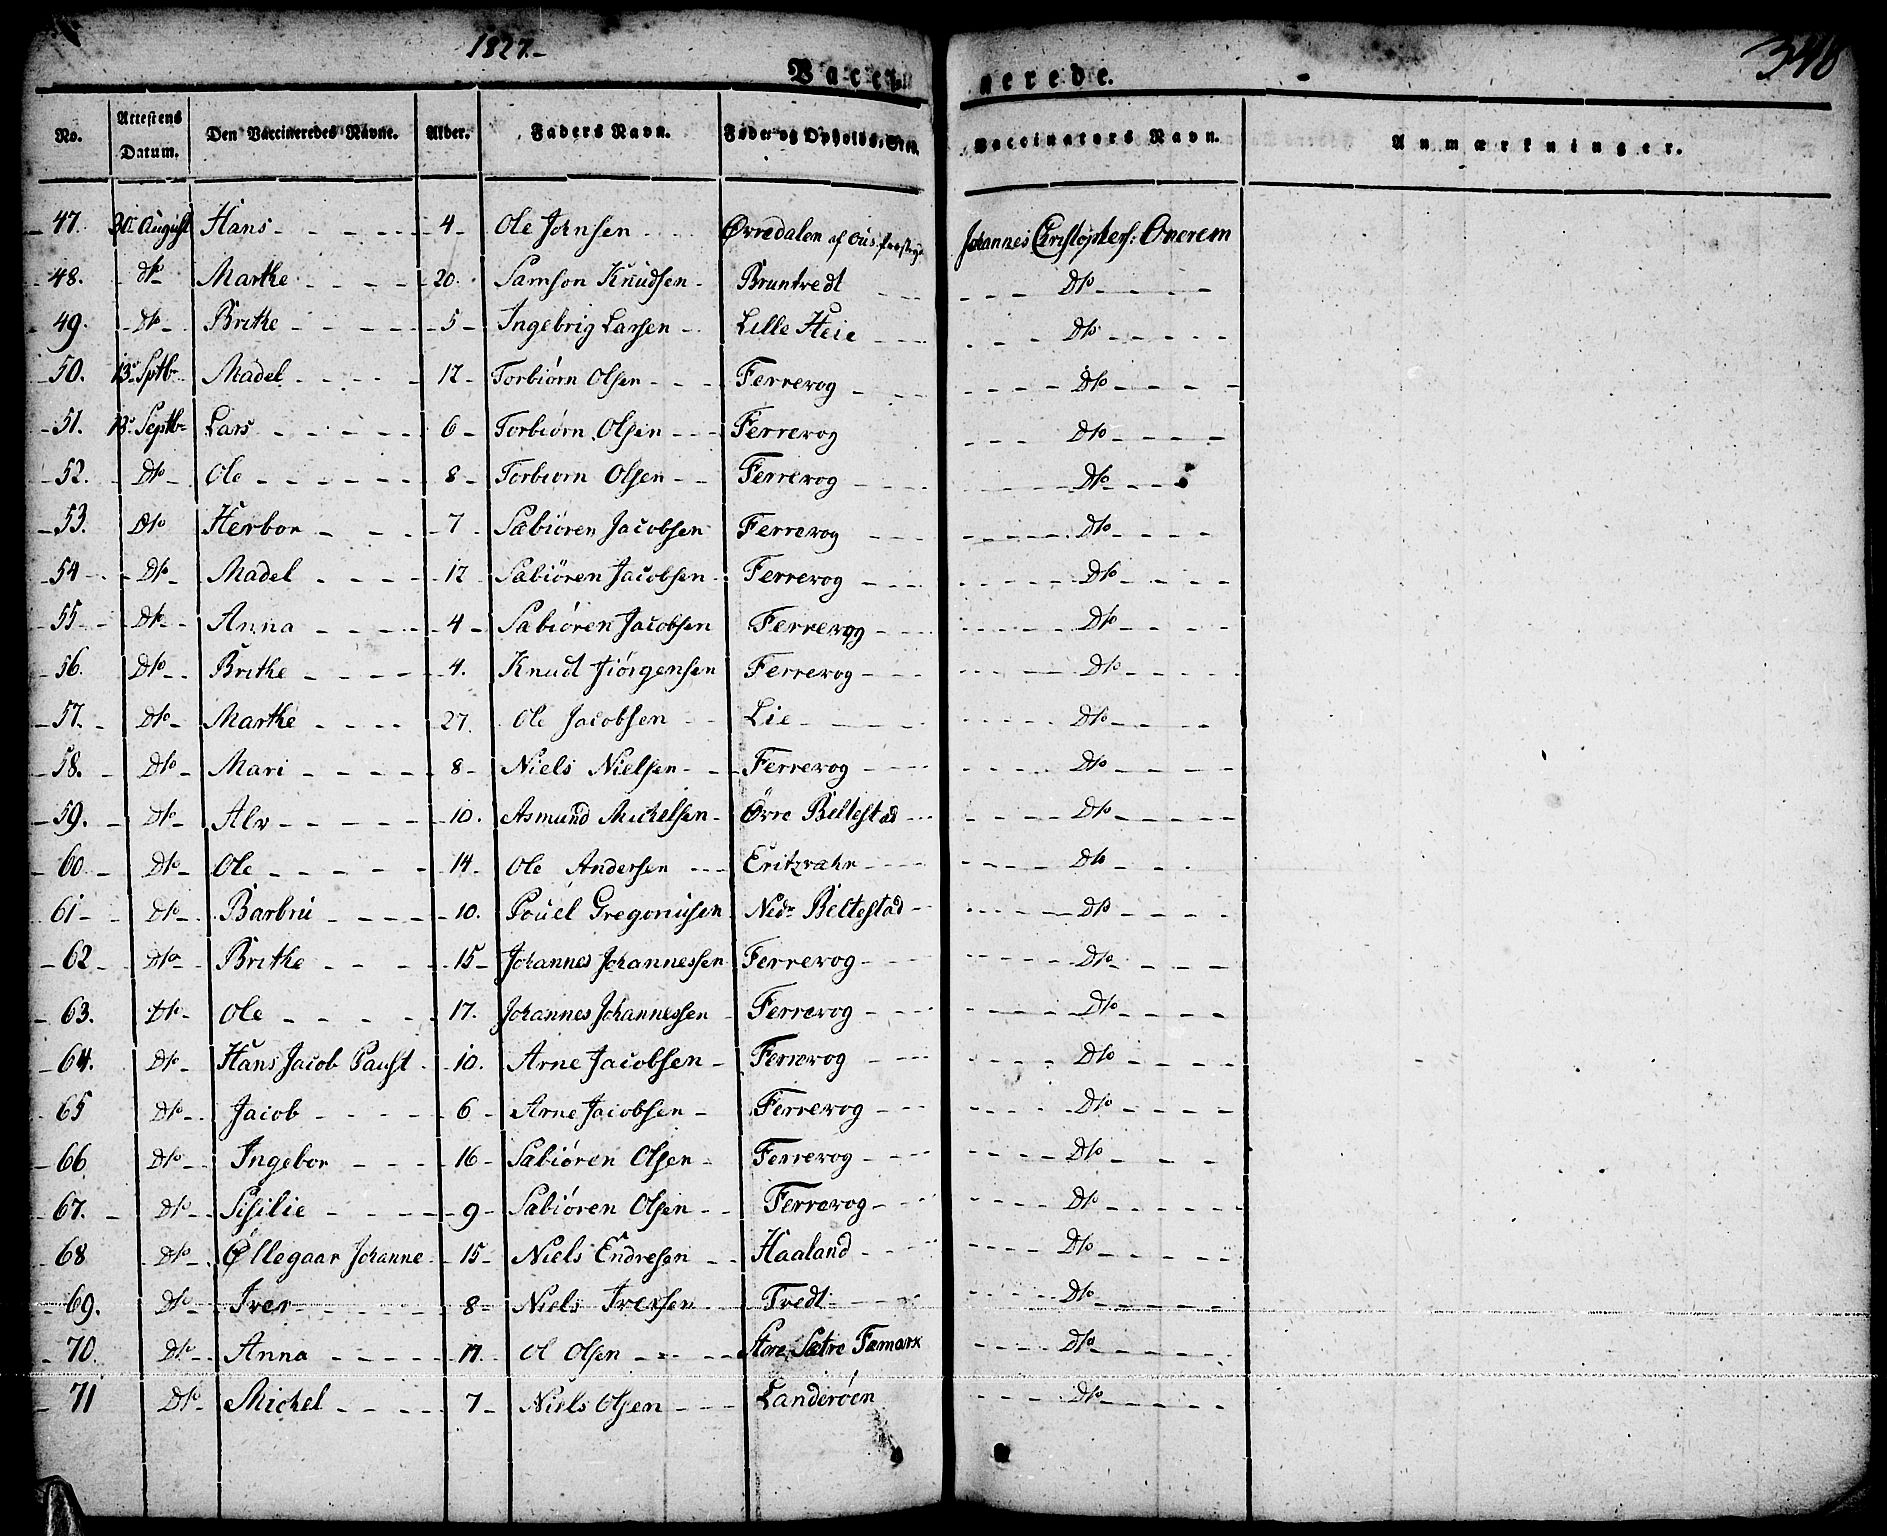 1827.
348
Vaccinerede.
No. Attestens Datum. Den Vaccineredes Navne. Alder. Faders Navn. Føde- og Opholds-Sted. Vaccinators Navn. Anmærkninger.
47. 30. August Hans - - - - - 4 - Ole Johnsen - - Øvredalen af Johannes Christophers: Onerem
48. - dto - Marthe - - - - 20. Samson Knudsen - Bruntvedt - - - - - - Dto - - - -
49. - Dto - Brithe - - - - 5 - Ingebrig Larsen - Lille Heie - - - - - - Dto - - - - -
50. 13. Sptbr Madel - - - - 17 - Torbiørn Olsen - - - Ferrevog - - - - - - Dto - - - -
51. 13. Septbr Lars - - - - - 6 - Torbiørn Olsen - - - Ferrevog - - - Dto - - - -
52. - Dto - Ole - - - - - 8 - Torbiorn Olsen - - Ferrevog - - - - - Dto - - -
53. Dto Herbor - - - 7 - Sæbiören Jacobsen Ferrevog - - - - - - - Dto - - - -
54 - - Dto - Madel - - - - 17 Sabiören Jacobsen - Ferrevog - - - - - - Dto - - - -
55 - - Dto - Anna - - - - 4 - Sæbiören Jacobsen Ferrevog - - - - - - Dto - - - -
56. Dto - Brithe - - - - 4. Knud Jiörgensen Ferrevog - - - - - - Dto - - - -
57. - Dto - Marthe - - - - 27. Ole Jacobsen - - Lie - - - - - - Dto - - - -
58. - Dto - Mari - - - - 8 - Niels Nielsen - - - Ferrevog - - - - - - Dto - - - -
59. - Dto - Alv - - - - - 10. Asmund Michelsen - Övre Beltestad - - - - - - Dto - - - -
60. - Dto - Ole - - - - - 14. Ole Andersen - - - Eritzvahn - - - - - - Dto - - - -
61 - - Dto - Barbru - - - - 10. Pouel Gregoriusen Nedr Beltestad - - - - - Dto - - - -
62 - Dto - Brithe - - - - 15 - Johannes Johannessen Ferrevog - - - - - - Dto - - - -
63. Dto - Ole - - - - 17. Johannes Johannessen - Ferrevog - - - - - - Dto - - - -
64. Dto - Hans Jacob Paust - 10. Arne Jacobsen - Ferrevog - - - - - - Dto - - - -
65 Dto - Jacob - - - - 6 - Arne Jacobsen - Ferrevog - - - - - - Dto - - - -
66 Dto - Ingebor - - - 16 - Sabiören Olsen - Ferrevog - - - - - - Dto - - - -
67. - Dto - Sisilie - - - - 9 - Sabiören Olsen - - Ferrevog - - - - - - Dto - - - -
68 - Dto - Øllegaar Johanne - 15 - Niels Endresen - - Haaland - - - - - - Dto - - - -
69. - Dto - Iver - - - - 8 - Niels Iversen - Tvedt - - - - - - Dto - - - -
70. Dto - Anna - - - - 11. Ol Olsen - - - Store Sætre Fæmark - - - - Dto - - - -
71 Dto - Michel - - - - 7 - Niels Olsen - - - Landeröen - - - Dto - - - -